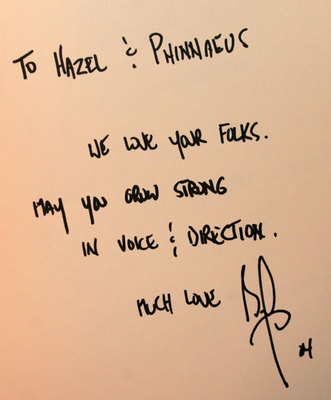 TO HAZEL & PHINNAEUS
WE LOVE YOUR FOLKS.
MAY YOU GROW STRONG
IN VOICE & DIRECTION.
MUCH LOVE
04